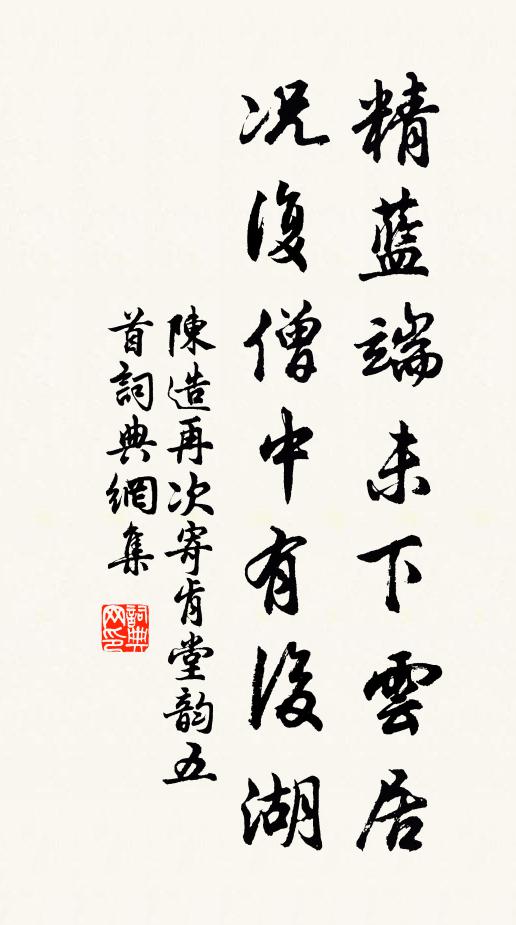 精藍端未下雲居
况復僧中有後湖
陳造再次寄肯堂韵五
首詞典網集
詞典
网印